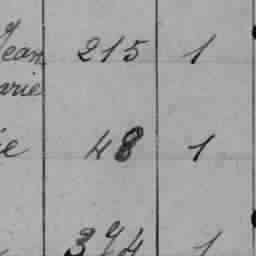 Jean 215 1
arie
ie 48 1
374 1